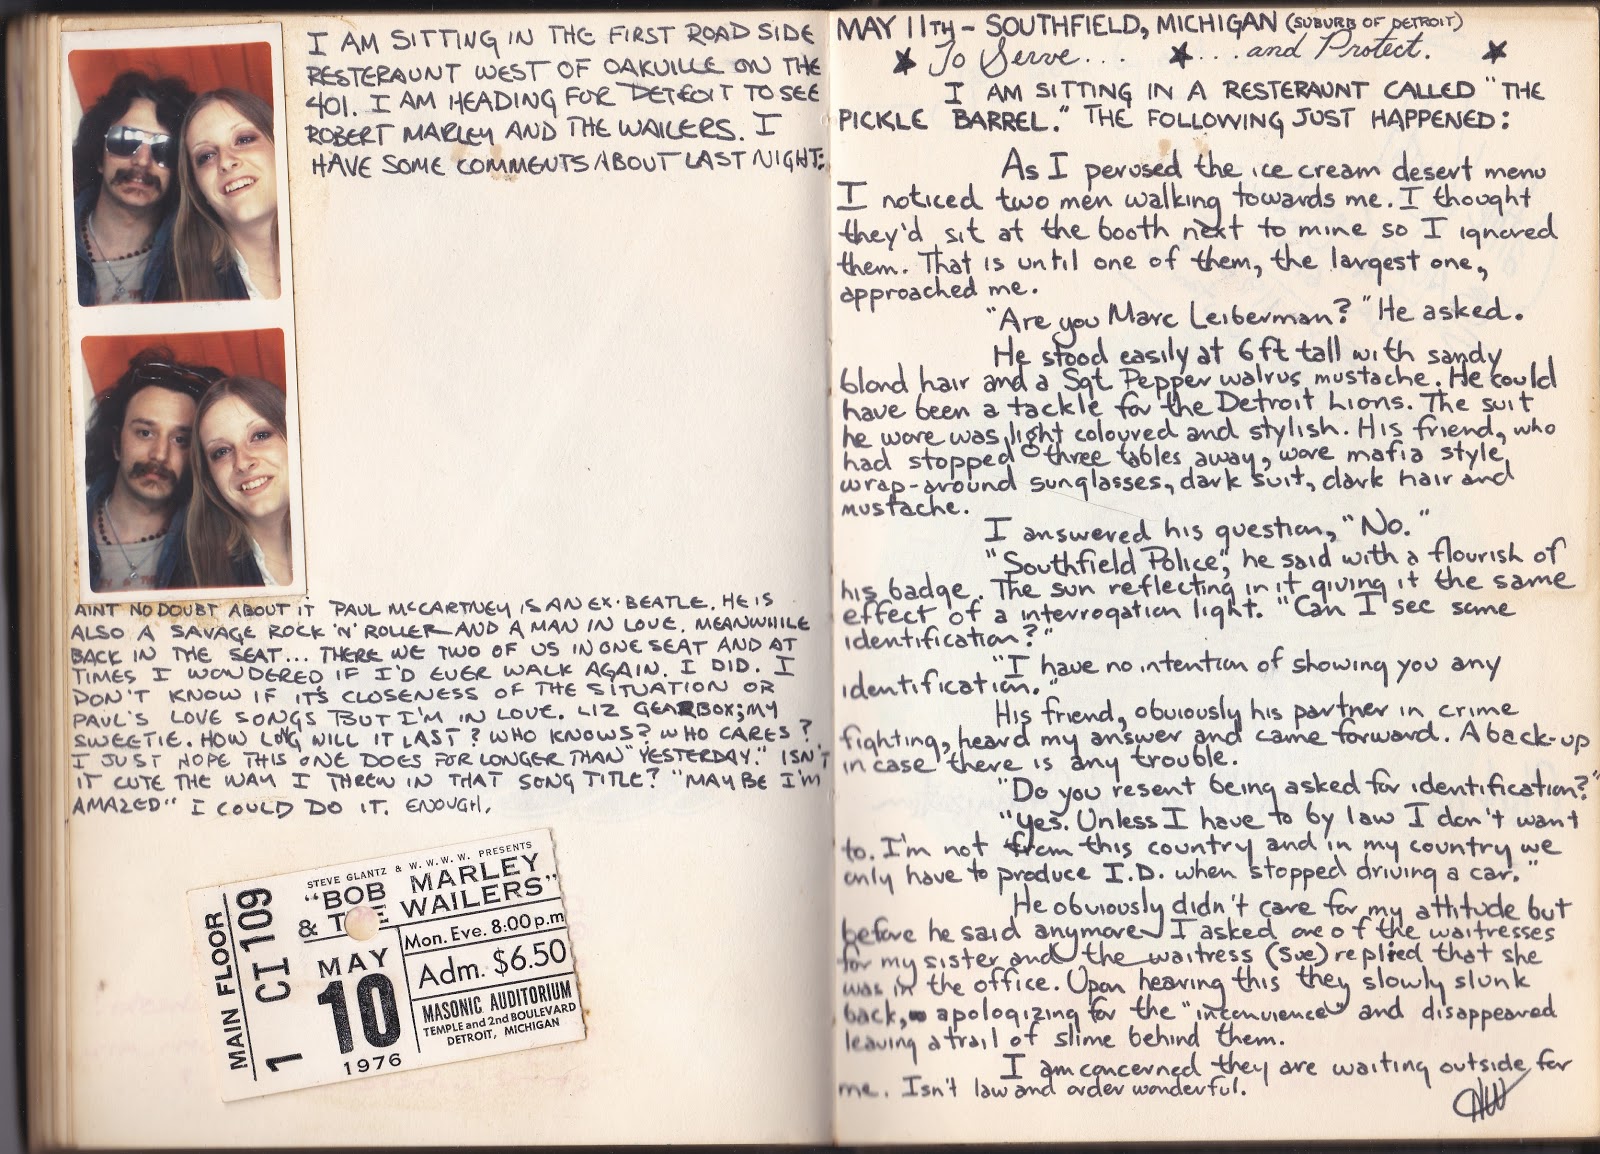 I AM SITTING IN THE FIRST ROAD SIDE
RESTERAUNT WEST OF OAKVILLE ON THE
401. I AM HEADING FOR DETROIT TO SEE
ROBERT MARLEY AND THE WAILERS. I
HAVE SOME COMMENTS ABOUT LAST NIGHT:
AINT NO DOUBT ABOUT IT PAUL McCARTNEY IS AN EX-BEATLE. HE IS
ALSO A SAVAGE ROCK 'N' ROLLER AND A MAN IN LOVE. MEANWHILE
BACK IN THE SEAT... THERE WE TWO OF US IN ONE SEAT AND AT
TIMES I WONDERED IF I'D EVER WALK AGAIN. I DID. I
DON'T KNOW IF IT'S CLOSENESS OF THE SITUATION OR
PAUL'S LOVE SONGS BUT I'M IN LOVE. LIZ GEARBOX; MY
SWEETIE. HOW LONG WILL IT LAST? WHO KNOWS? WHO CARES?
I JUST HOPE THIS ONE DOES FOR LONGER THAN "YESTERDAY." ISN'T
IT CUTE THE WAY I THREW IN THAT SONG TITLE? "MAYBE I'M
AMAZED" I COULD DO IT. ENOUGH.
MAIN FLOOR
1 CI 109
STEVE GLANTZ & W.W.W.W. PRESENTS
"BOB MARLEY
& THE WAILERS"
MAY
10
1976
Mon. Eve. 8:00 p.m
Adm. $6.50
MASONIC AUDITORIUM
TEMPLE and 2nd BOULEVARD
DETROIT, MICHIGAN
MAY 11TH - SOUTHFIELD, MICHIGAN (SUBURB OF DETROIT)
★ To Serve... ★ ...and Protect. ★
I AM SITTING IN A RESTERAUNT CALLED "THE
PICKLE BARREL." THE FOLLOWING JUST HAPPENED:
As I perused the ice cream desert menu
I noticed two men walking towards me. I thought
they'd sit at the booth next to mine so I ignored
them. That is until one of them, the largest one,
approached me.
"Are you Marc Leiberman?" He asked.
He stood easily at 6 ft tall with sandy
blond hair and a Sgt Pepper walrus mustache. He could
have been a tackle for the Detroit Lions. The suit
he wore was light coloured and stylish. His friend, who
had stopped three tables away, wore mafia style
wrap-around sunglasses, dark suit, dark hair and
mustache.
I answered his question, "No."
"Southfield Police", he said with a flourish of
his badge. The sun reflecting in it giving it the same
effect of a interrogation light. "Can I see some
identification?"
"I have no intention of showing you any
identification."
His friend, obviously his partner in crime
fighting, heard my answer and came forward. A back-up
in case there is any trouble.
"Do you resent being asked for identification?"
"Yes. Unless I have to by law I don't want
to. I'm not from this country and in my country we
only have to produce I.D. when stopped driving a car."
He obviously didn't care for my attitude but
before he said anymore I asked one of the waitresses
for my sister and the waitress (Sue) replied that she
was in the office. Upon hearing this they slowly slunk
back, apologizing for the "inconvience" and disappeared
leaving a trail of slime behind them.
I am concerned they are waiting outside for
me. Isn't law and order wonderful.